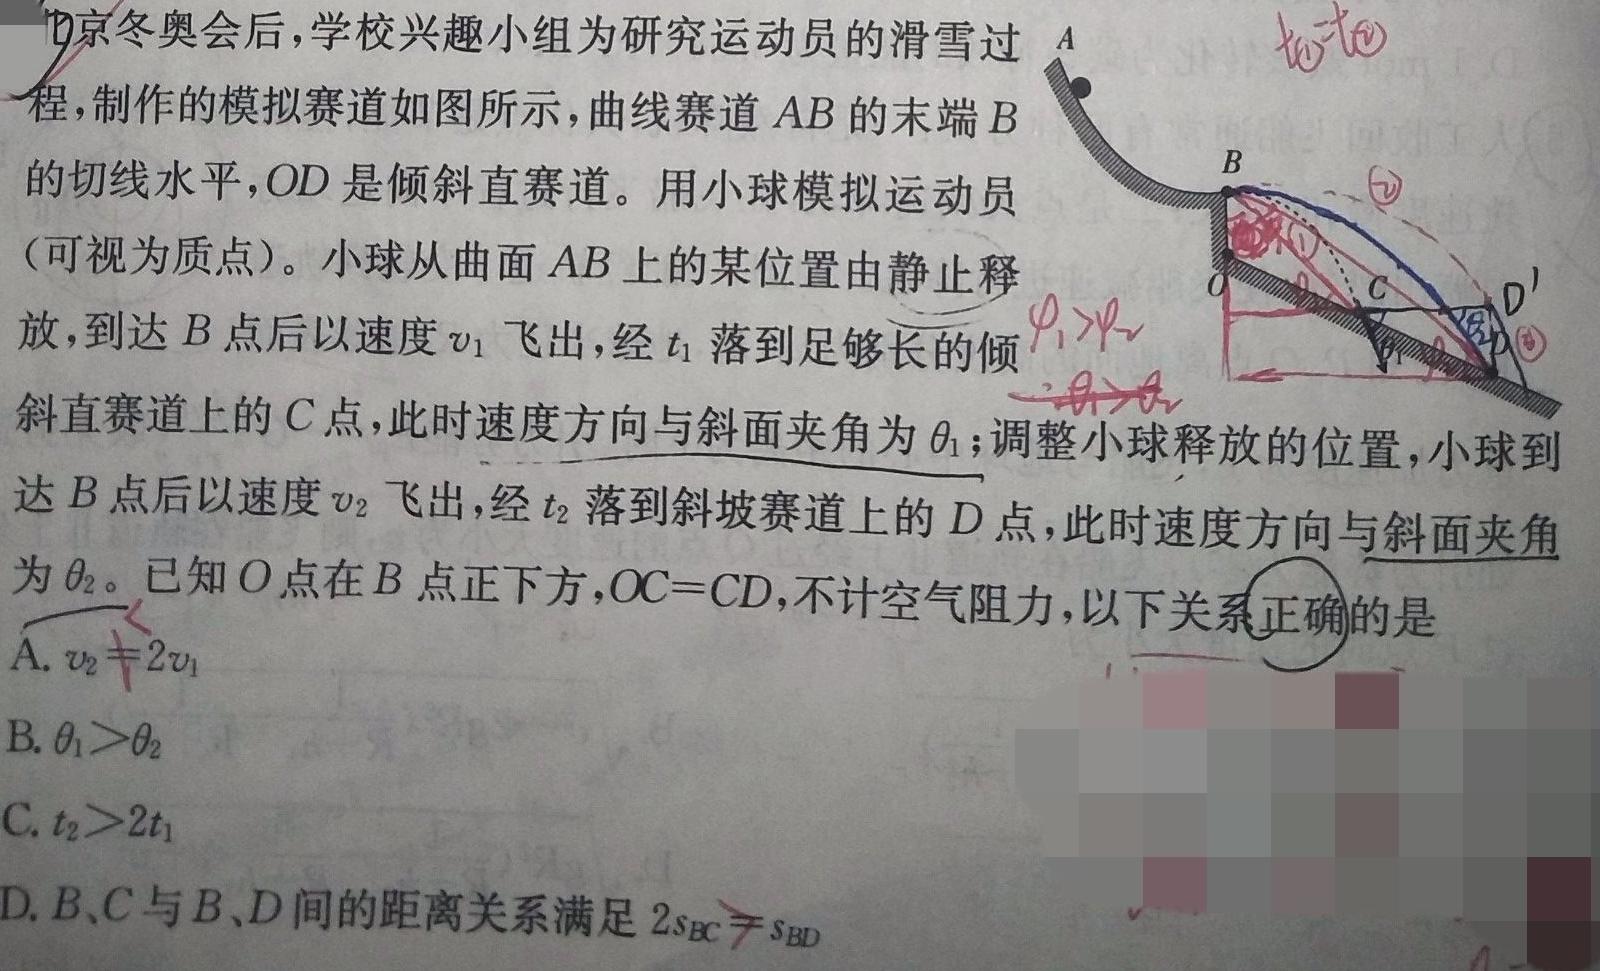 京冬奥会后,学校兴趣小组为研究运动员的滑雪过
程,制作的模拟赛道如图所示,曲线赛道 AB 的末端 B
的切线水平,OD 是倾斜直赛道。用小球模拟运动员
(可视为质点)。小球从曲面 AB 上的某位置由静止释
放,到达 B 点后以速度 v₁ 飞出,经 t₁ 落到足够长的倾
斜直赛道上的 C 点,此时速度方向与斜面夹角为 θ₁;调整小球释放的位置,小球到
达 B 点后以速度 v₂ 飞出,经 t₂ 落到斜坡赛道上的 D 点,此时速度方向与斜面夹角
为 θ₂。已知 O 点在 B 点正下方,OC=CD,不计空气阻力,以下关系正确的是
A. v₂=2v₁
<
B. θ₁>θ₂
C. t₂>2t₁
D. B、C 与 B、D 间的距离关系满足 2s_BC=s_BD
>
A
B
O
C
D
D'
t①=t②
①
②
φ₁>φ₂
∴θ₁>θ₂
θ₁